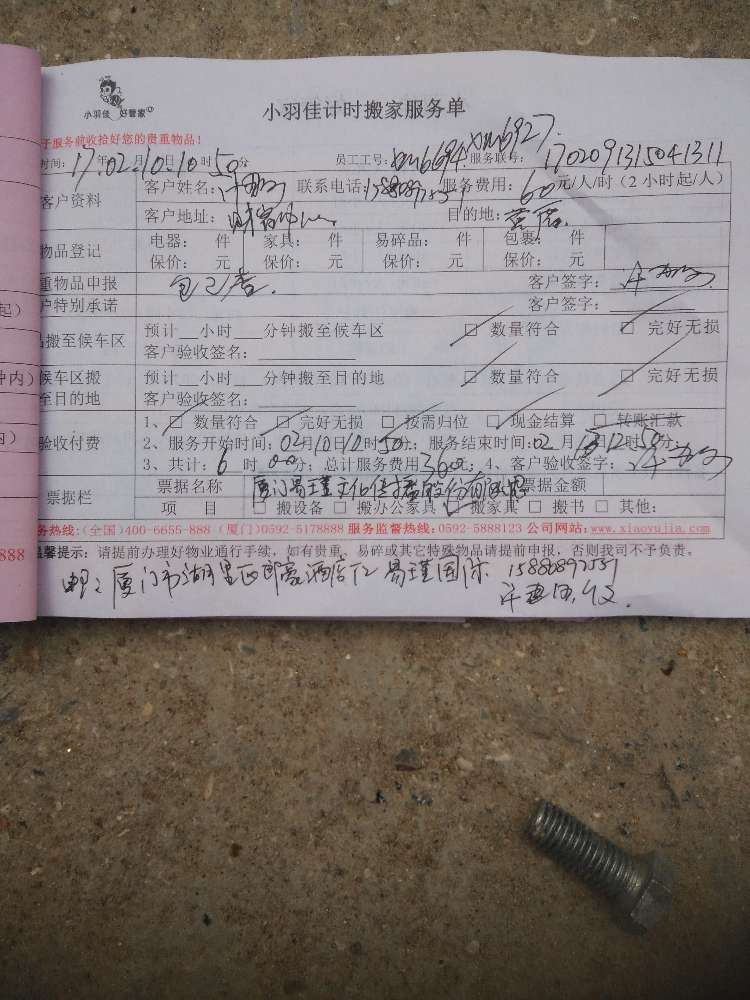 小羽佳 好管家
小羽佳计时搬家服务单
于服务前收拾好您的贵重物品!
时间: 17年02月10日10时50分 员工工号: xm6694 xm6927 服务联号: 170209131504 1311
客户资料 客户姓名: 联系电话: 服务费用: 60元/人/时(2小时起/人)
客户地址: 目的地:
物品登记 电器: 件 家具: 件 易碎品: 件 包裹: 件
保价: 元 保价: 元 保价: 元 保价: 元
重物品申报 客户签字:
户特别承诺 客户签字:
起)
品搬至候车区 预计__小时___分钟搬至候车区 □ 数量符合 □ 完好无损
客户验收签名:
钟内) 候车区搬至目的地 预计__小时___分钟搬至目的地 □ 数量符合 □ 完好无损
客户验收签名:
内) 验收付费 1、□ 数量符合 □ 完好无损 □ 按需归位 □ 现金结算 □ 转账汇款
2、服务开始时间: 02月10日10时50分; 服务结束时间: 02月 日12时50分;
3、共计: 6时00分; 总计服务费用360元; 4、客户验收签字:
票据栏 票据名称 厦门易瑾文化传播股份有限公司 票据金额
项 目 □ 搬设备 □ 搬办公家具 □ 搬家具 □ 搬书 □ 其他:
888 务热线:(全国)400-6655-888 (厦门)0592-5178888 服务监督热线:0592-5888123 公司网站:www.xiaoyujia.com
温馨提示: 请提前办理好物业通行手续, 如有贵重、易碎或其它特殊物品请提前申报, 否则我司不予负责。
厦门市湖里区 豪酒店 易瑾国际
收